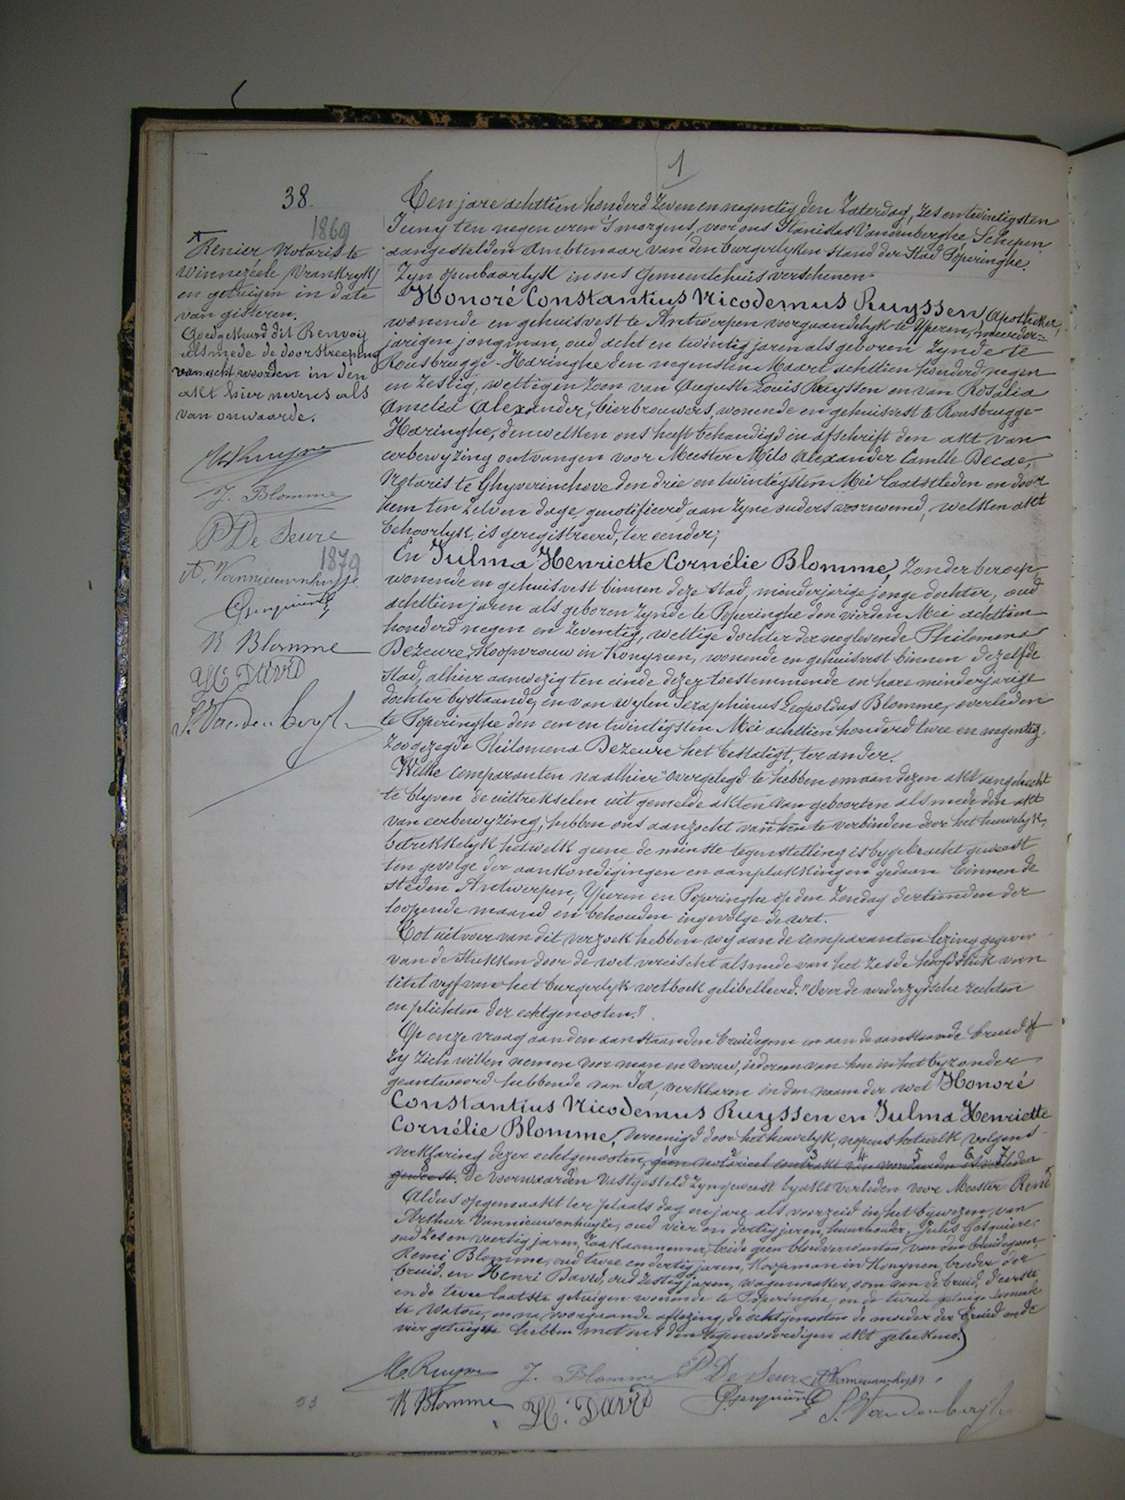 1
38.
1869
Renier Notaris te
Winnezeele (Vrankryk)
en getuigen in date
van gisteren.
Goedgekeurd dit Renvooi
alsmede de doorstreeping
van acht woorden in den
akt hier nevens als
van onwaarde.
J. Blomme
P De Seure
1879
A. Vannieuwenhuyse
R Blomme
H. David
S. Vandenberghe
Ten jare achttien honderd zeven en negentig den Zaterdag, zes en twintigsten
Juny ten negen uren 's morgens, voor ons Stanislas Vandenberghe Schepen
aangestelden Ambtenaar van den burgerlyken stand der Stad Poperinghe.
Zyn openbaarlyk in ons Gemeentehuis verschenen
Honoré Constantius Nicodemus Ruyssen, Apotheker,
wonende en gehuisvest te Antwerpen voorgaandelyk te Yperen, meerder-
jarigen jongman, oud acht en twintig jaren als geboren zynde te
Rousbrugge-Haringhe den negensten Maart achttien honderd negen
en zestig, wettigen zoon van Auguste Louis Ruyssen en van Rosalia
Amelia Alexander, bierbrouwers, wonende en gehuisvest te Rousbrugge-
Haringhe, denwelken ons heeft behandigd in afschrift den akt van
eerbewyzing ontvangen voor Meester Milo Alexander Camille Decae,
Notaris te Ghyverinchove den drie en twintigsten Mei laatstleden en door
hem ten zelven dage genotifieerd, aan zyne ouders voornoemd, welken akt
behoorlyk is geregistreerd, ter eender;
En Julma Henriette Cornélie Blomme, zonder beroep
wonende en gehuisvest binnen deze stad, minderjarige jonge dochter, oud
achttien jaren als geboren zynde te Poperinghe den vierden Mei achttien
honderd negen en zeventig, wettige dochter der nog levende Philomena
Dezeure, koopvrouw in Konynen, wonende en gehuisvest binnen dezelfde
stad, alhier aanwezig ten einde dezer toestemmende en hare minderjarige
dochter bystaande, en van wylen Seraphinus Leopoldus Blomme, overleden
te Poperinghe den een en twintigsten Mei achttien honderd twee en negentig,
zoo gezegde Philomena Dezeure het bestatigt, ter ander.
Welke Comparanten na alhier overgelegd te hebben om aan dezen akt aangehecht
te blyven de uittrekselen uit gemelde akten van geboorten alsmede den akt
van eerbewyzing, hebben ons aanzocht van hen te verbinden door het huwelyk,
betrekkelyk hetwelk geene de minste tegenstelling is bygebracht geweest
ten gevolge der aankondigingen en aanplakkingen gedaan binnen de
steden Antwerpen, Yperen en Poperinghe op den Zondag dertienden der
loopende maand en behouden ingevolge de wet.
Tot uitvoer van dit verzoek hebben wy aan de comparanten lezing gegeven
van de stukken door de wet vereischt alsmede van het zesde hoofdstuk van
titel vyf van het burgerlyk wetboek gelibelleerd: "Over de wederzydsche rechten
en plichten der echtgenooten."
Op onze vraag aan den aanstaanden bruidegom en aan de aanstaande bruid of
zy zich willen nemen voor man en vrouw, iedereen van hen in het byzonder
geantwoord hebbende van Ja, verklaren in den naam der wet Honoré
Constantius Nicodemus Ruyssen en Julma Henriette
Cornélie Blomme, vereenigd door het huwelyk, nopens hetwelk volgens
verklaring dezer echtgenooten, geen notarieel contrakt van voorwaarden is verleden
geweest. De voorwaarden vastgesteld zyn geweest by akt verleden voor Meester René
Aldus opgemaakt ter plaats dag en jare als voorzeid in het bywezen van
Arthur Vannieuwenhuyse, oud vier en dertig jaren, huurhouder, Jules Gesquiere,
oud zes en veertig jaren, zaakwaarnemer, beide geen bloedverwanten van den bruidegom,
Remi Blomme, oud twee en dertig jaren, Koopman in Konynen, broeder der
bruid, en Henri David, oud zestig jaren, wagenmaker, oom van de bruid, d'eerste
en de twee laatste getuigen wonende te Poperinghe, en de tweede getuige wonende
te Watou, en na voorgaande aflezing, de echtgenooten, de moeder der bruid en de
vier getuigen hebben met ons den tegenwoordigen akt geteekend.
H. Ruyssen J. Blomme P De Seure A. Vannieuwenhuyse
R Blomme H. David S. Vandenberghe
53